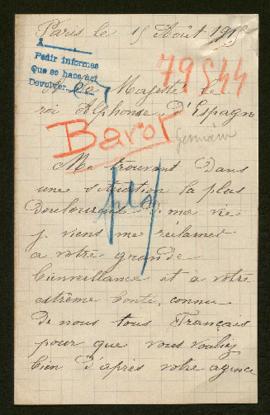 Paris le 15 Août 191
Pedir informes
Que se hace así
Devolver
79544
A Sa Majesté le
roi Alphonse d'Espagne
Barot
Germain
Me trouvant dans
une situation la plus
douloureuse de ma vie
je viens me réclamer
a votre grande
bienveillance et a votre
extrème bonté, connue
de nous tous Français
pour que vous vouliez
bien d'après votre agence